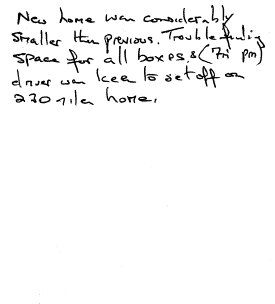 New home was considerably
smaller than previous. Trouble finding
space for all boxes, & (Fri pm)
driver was keen to set off on
230 mile home.